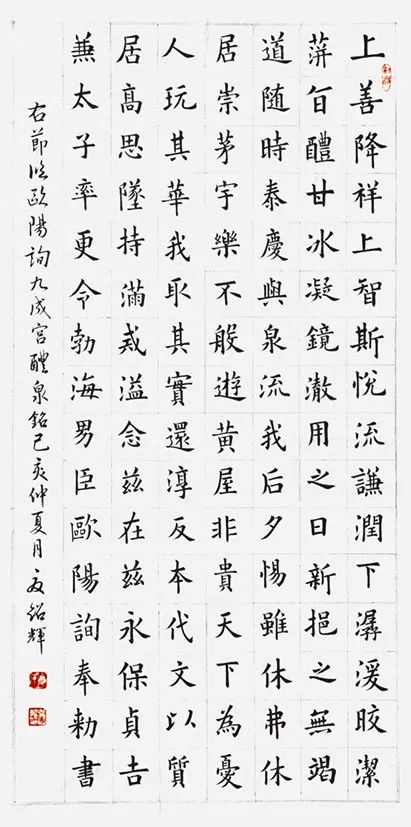 上善降祥上智斯悅流謙潤下潺湲晈潔
蓱旨醴甘冰凝鏡澈用之日新挹之無竭
道随時泰慶與泉流我后夕惕雖休弗休
居崇茅宇樂不般遊黃屋非貴天下為憂
人玩其華我取其實還淳反本代文以質
居髙思墜持滿戒溢念兹在兹永保貞吉
兼太子率更令勃海男臣歐陽詢奉勅書
右節临歐陽詢九成宮醴泉銘己亥仲夏月紹輝